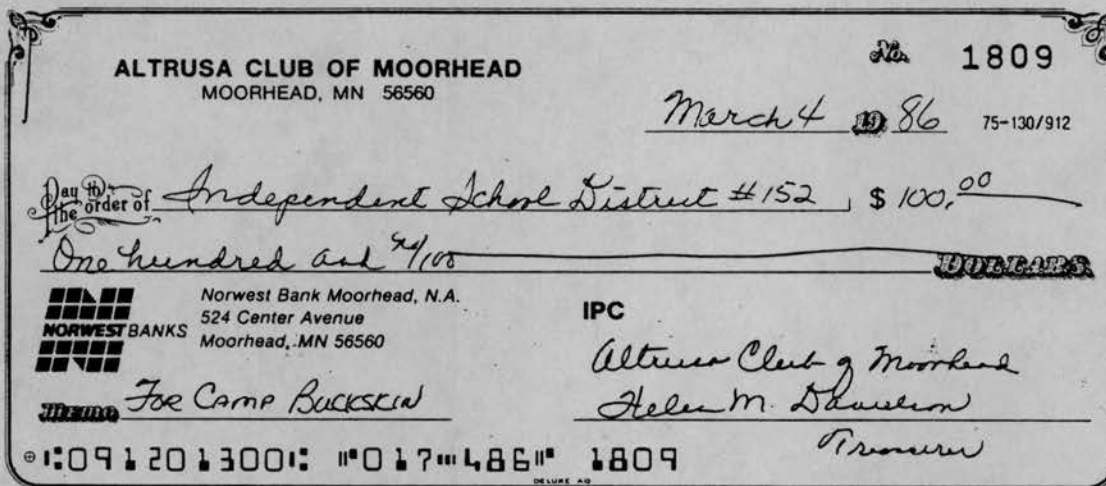 No. 1809
ALTRUSA CLUB OF MOORHEAD
MOORHEAD, MN 56560
March 4 19 86 75-130/912
Pay to the order of Independent School District #152 $ 100.00
One hundred and no/100 DOLLARS
NORWEST BANKS
Norwest Bank Moorhead, N.A.
524 Center Avenue
Moorhead, MN 56560
IPC
Altrusa Club of Moorhead
Memo For Camp Buckskin
Helen M. Davidson
Treasurer
⑆091201300⑆ ⑈017⑉486⑈ 1809
DELUXE